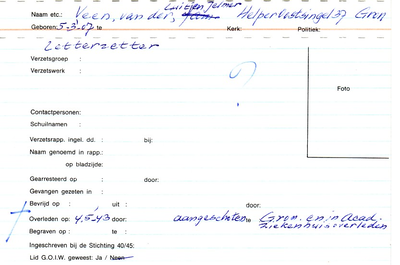 Luitjen Jelmer
Naam etc.: Veen, van der, Helperoostsingel 37 Gron
Geboren: 5-3-07 te Kerk: Politiek:
Letterzetter
Verzetsgroep :
Verzetswerk :
Foto
Contactpersonen:
Schuilnamen :
Verzetsrapp. ingel. dd. : bij:
Naam genoemd in rapp.:
op bladzijde:
Gearresteerd op : door:
Gevangen gezeten in :
Bevrijd op : uit : door:
Overleden op: 4.5.43 door: aangeschoten te Gron. en in Acad.
Begraven op : te : ziekenhuis overleden
Ingeschreven bij de Stichting 40/45:
Lid G.O.I.W. geweest: Ja / Neen